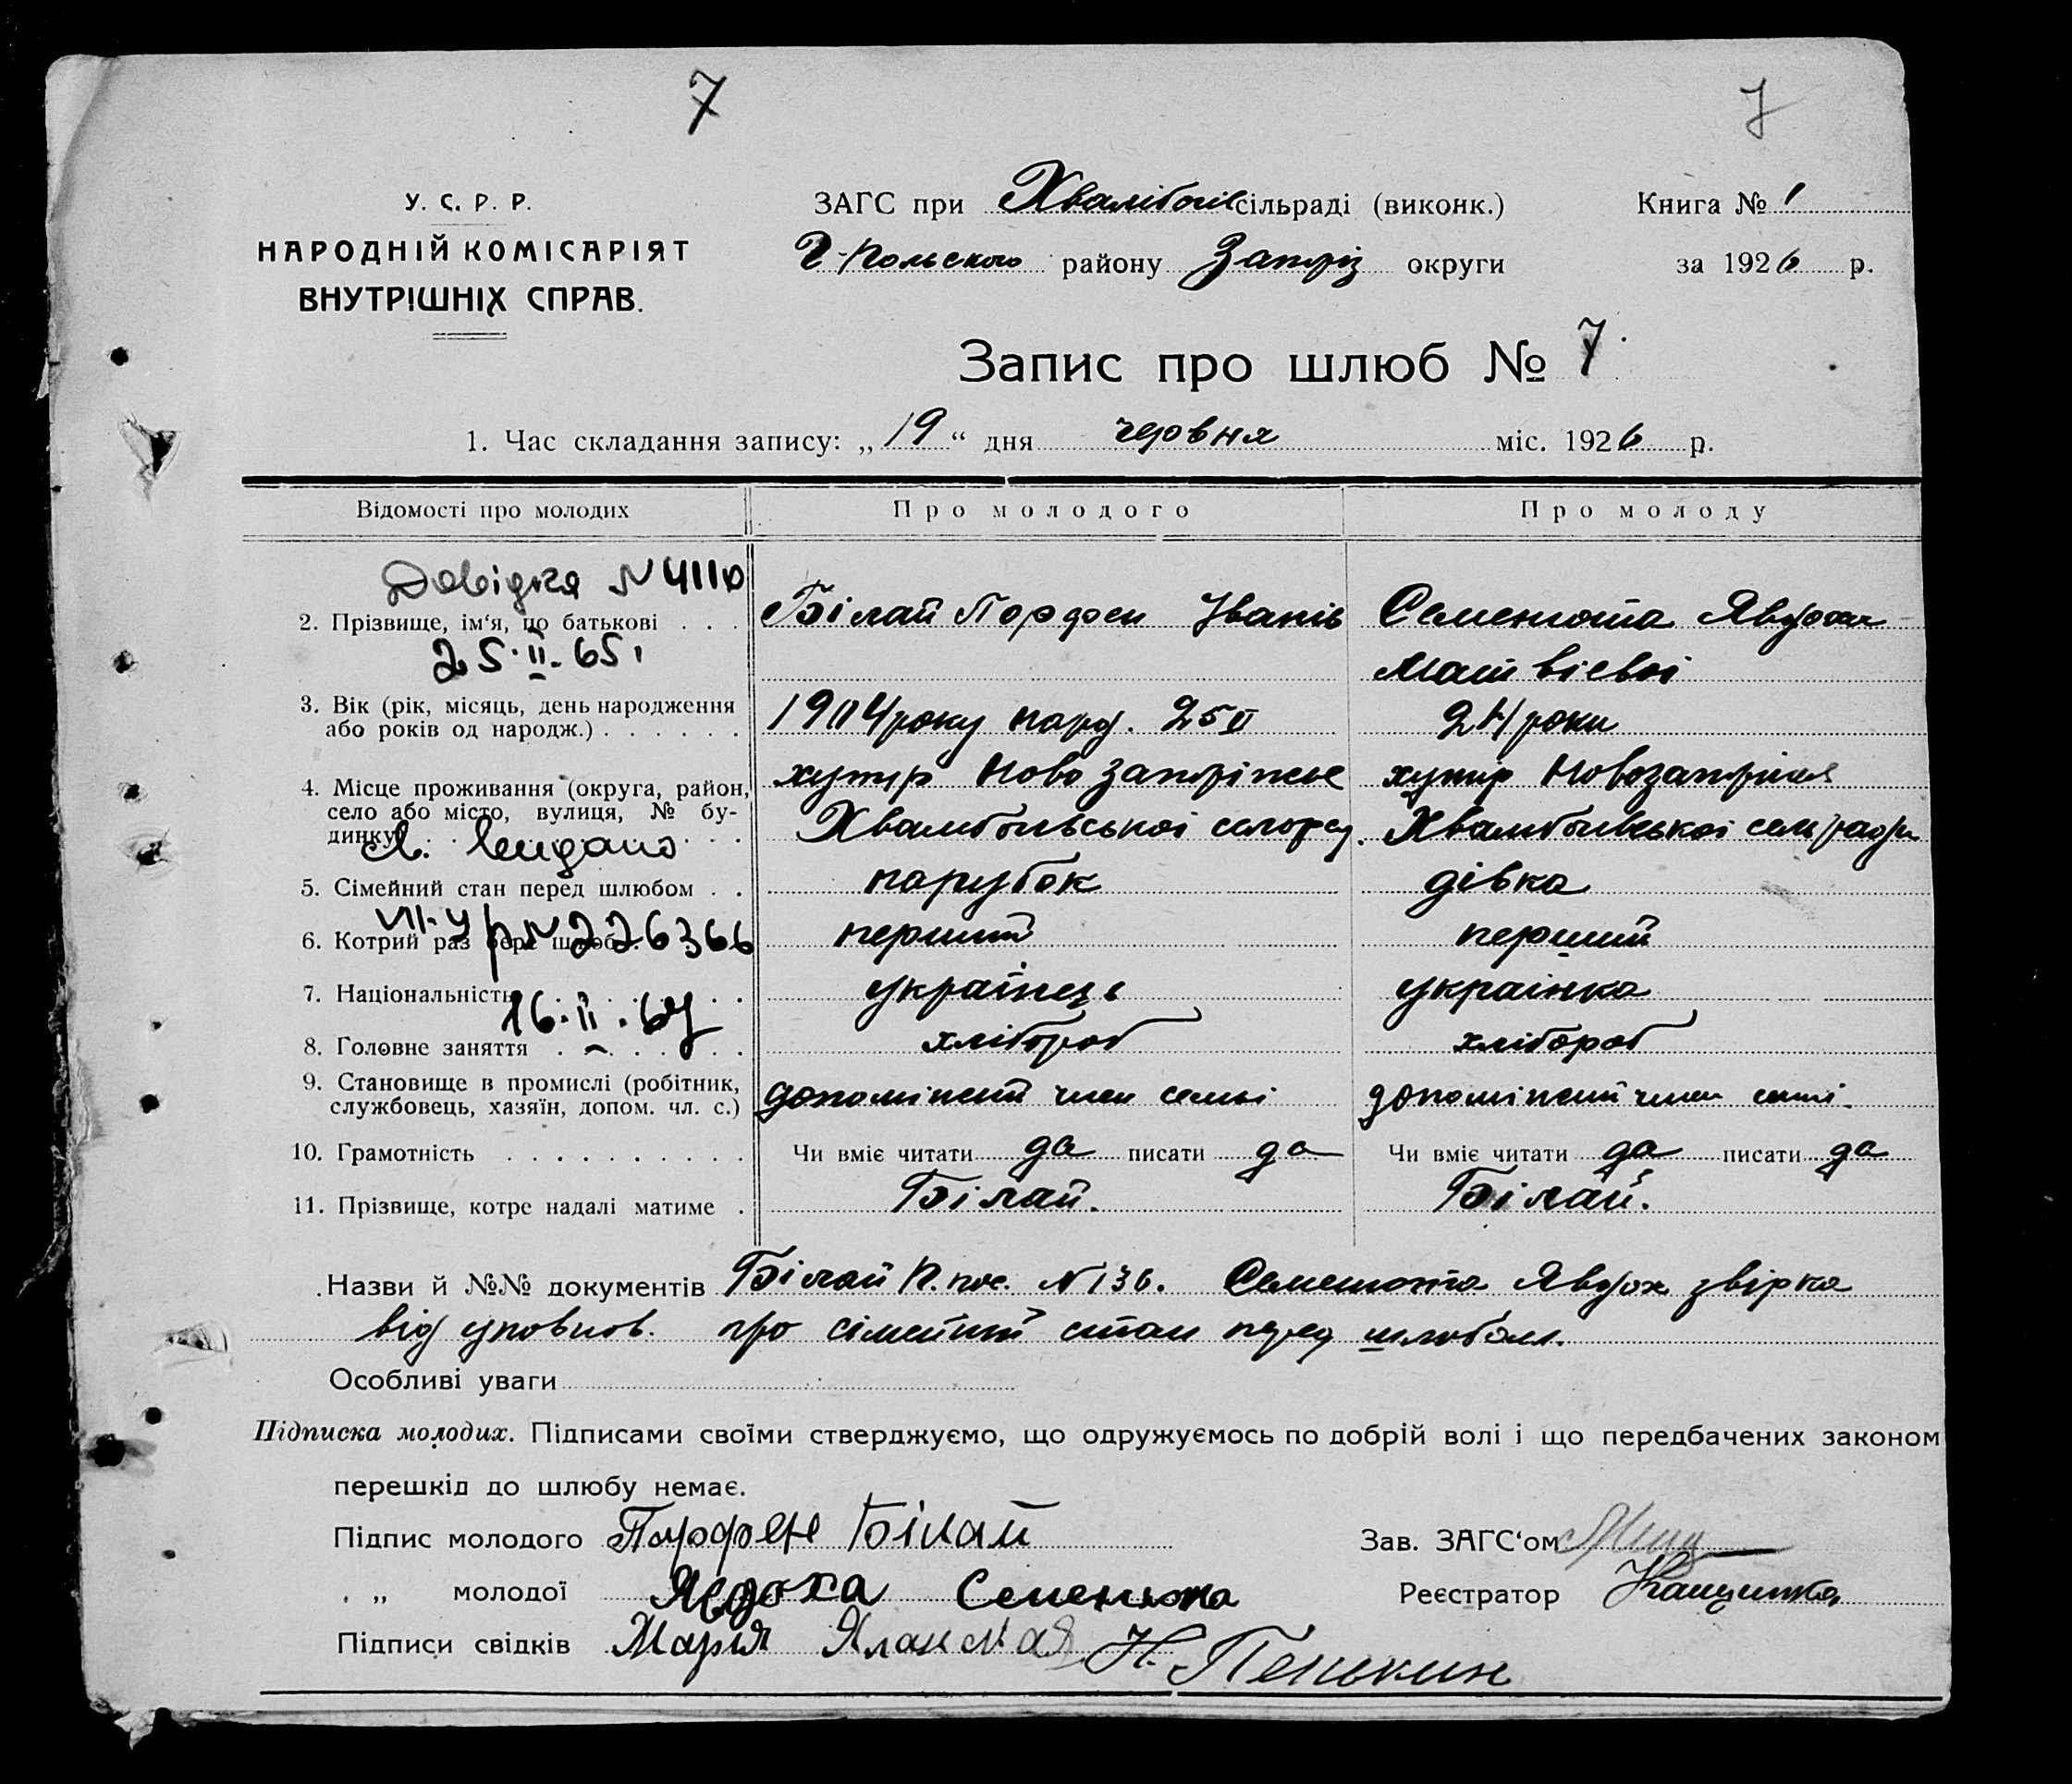 7
7
У. С. Р. Р.
НАРОДНІЙ КОМІСАРІЯТ
ВНУТРІШНІХ СПРАВ.
ЗАГС при Хвалібогів сільраді (виконк.)
Г-Польского району Запоріз округи
Книга № 1
за 1926 р.
Запис про шлюб № 7
1. Час складання запису: „19“ дня червня міс. 1926 р.
Відомості про молодих
Про молодого
Про молоду
Довідка N 4110
2. Прізвище, ім‘я, по батькові . . .
Білай Порфен Іванів
Семенюта Явдоха
25.II.65
Матвієвої
3. Вік (рік, місяць, день народження або років од народж.) . . . . . .
1904 року нард. 25 II
21 роки
4. Місце проживання (округа, район, село або місто, вулиця, № будинку) . . . . . .
хутір Новозапоріжже
Хвалибогівської сельрад.
хутір Новозапоріжя
Хвалибогівської сельради
5. Сімейний стан перед шлюбом . .
парубок
дівка
6. Котрий раз бере шлюб
N 226366
перший
перший
7. Національність . . . . . .
українець
українка
16.II.67
8. Головне заняття . . . . . .
хлібороб
хлібороб
9. Становище в промислі (робітник, службовець, хазяїн, допом. чл. с.)
допоміжний член семьі
допоміжний член семьі.
10. Грамотність . . . . . . . . . .
Чи вміє читати да писати да
Чи вміє читати да писати да
11. Прізвище, котре надалі матиме .
Білай.
Білай.
Назви й №№ документів Білай П. пос. N 136. Семенюта Явдох звірка
від уповнов. про сімейний стан перед шлюбом.
Особливі уваги
Підписка молодих. Підписами своїми стверджуємо, що одружуємось по добрій волі і що передбачених законом
перешкід до шлюбу немає.
Підпис молодого Парфен Білай
Зав. ЗАГС‘ом
„ молодої Явдоха Семенюта
Реєстратор
Підписи свідків Мария Н. Пенькин